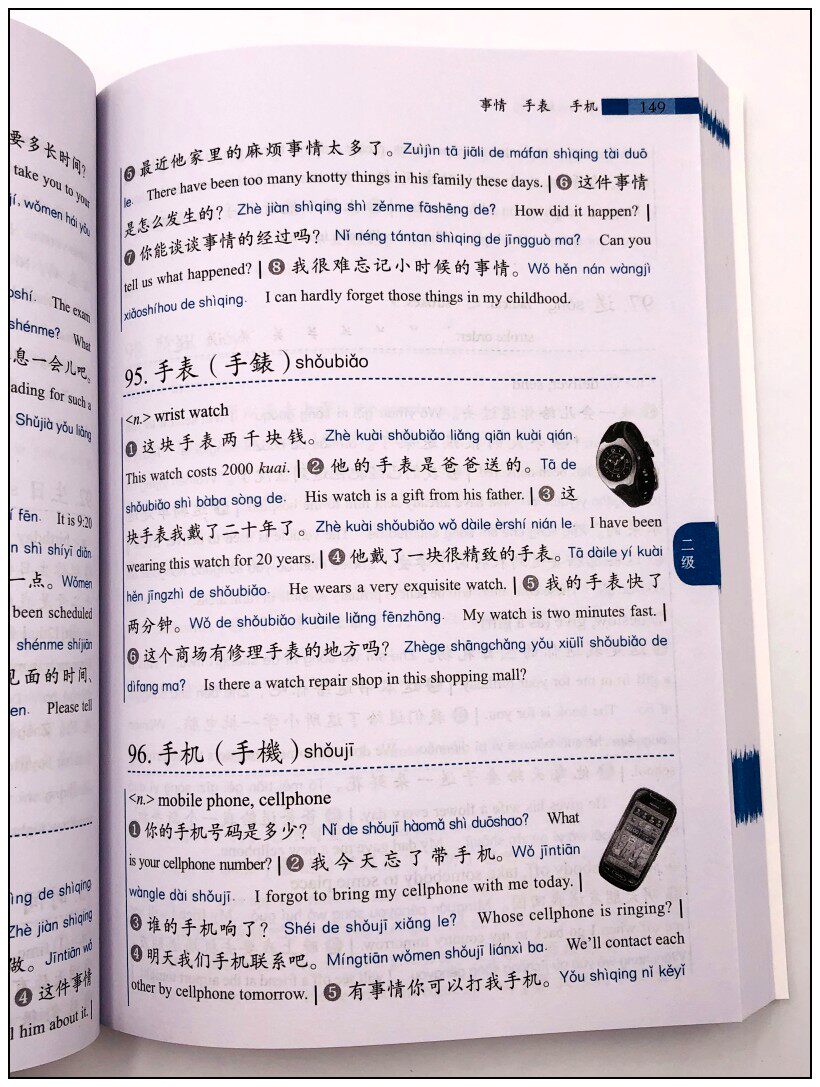 要多长时间？
take you to your
jí, wǒmen hái yǒu
oshí. The exam
shénme? What
息一会儿吧。
ading for such a
Shǔjià yǒu liǎng
í fēn. It is 9:20
n shì shíyī diǎn
一点。Wǒmen
been scheduled
shénme shíjiān
见面的时间、
en. Please tell
ìng de shìqing
Zhè jiàn shìqing
做。Jīntiān wǒ
❹ 这件事情
l him about it.
事情 手表 手机 149
❺ 最近他家里的麻烦事情太多了。Zuìjìn tā jiāli de máfan shìqing tài duō
le. There have been too many knotty things in his family these days. | ❻ 这件事情
是怎么发生的？ Zhè jiàn shìqing shì zěnme fāshēng de? How did it happen? |
❼ 你能谈谈事情的经过吗？ Nǐ néng tántan shìqing de jīngguò ma? Can you
tell us what happened? | ❽ 我很难忘记小时候的事情。Wǒ hěn nán wàngjì
xiǎoshíhou de shìqing. I can hardly forget those things in my childhood.
95. 手表（手錶）shǒubiǎo
<n.> wrist watch
❶ 这块手表两千块钱。Zhè kuài shǒubiǎo liǎng qiān kuài qián.
This watch costs 2000 kuai. | ❷ 他的手表是爸爸送的。Tā de
shǒubiǎo shì bàba sòng de. His watch is a gift from his father. | ❸ 这
块手表我戴了二十年了。Zhè kuài shǒubiǎo wǒ dàile èrshí nián le. I have been
wearing this watch for 20 years. | ❹ 他戴了一块很精致的手表。Tā dàile yí kuài
hěn jīngzhì de shǒubiǎo. He wears a very exquisite watch. | ❺ 我的手表快了
两分钟。Wǒ de shǒubiǎo kuàile liǎng fēnzhōng. My watch is two minutes fast. |
❻ 这个商场有修理手表的地方吗？ Zhège shāngchǎng yǒu xiūlǐ shǒubiǎo de
dìfang ma? Is there a watch repair shop in this shopping mall?
二级
96. 手机（手機）shǒujī
<n.> mobile phone, cellphone
❶ 你的手机号码是多少？ Nǐ de shǒujī hàomǎ shì duōshao? What
is your cellphone number? | ❷ 我今天忘了带手机。Wǒ jīntiān
wàngle dài shǒujī. I forgot to bring my cellphone with me today. |
❸ 谁的手机响了？ Shéi de shǒujī xiǎng le? Whose cellphone is ringing? |
❹ 明天我们手机联系吧。Míngtiān wǒmen shǒujī liánxì ba. We'll contact each
other by cellphone tomorrow. | ❺ 有事情你可以打我手机。Yǒu shìqing nǐ kěyǐ